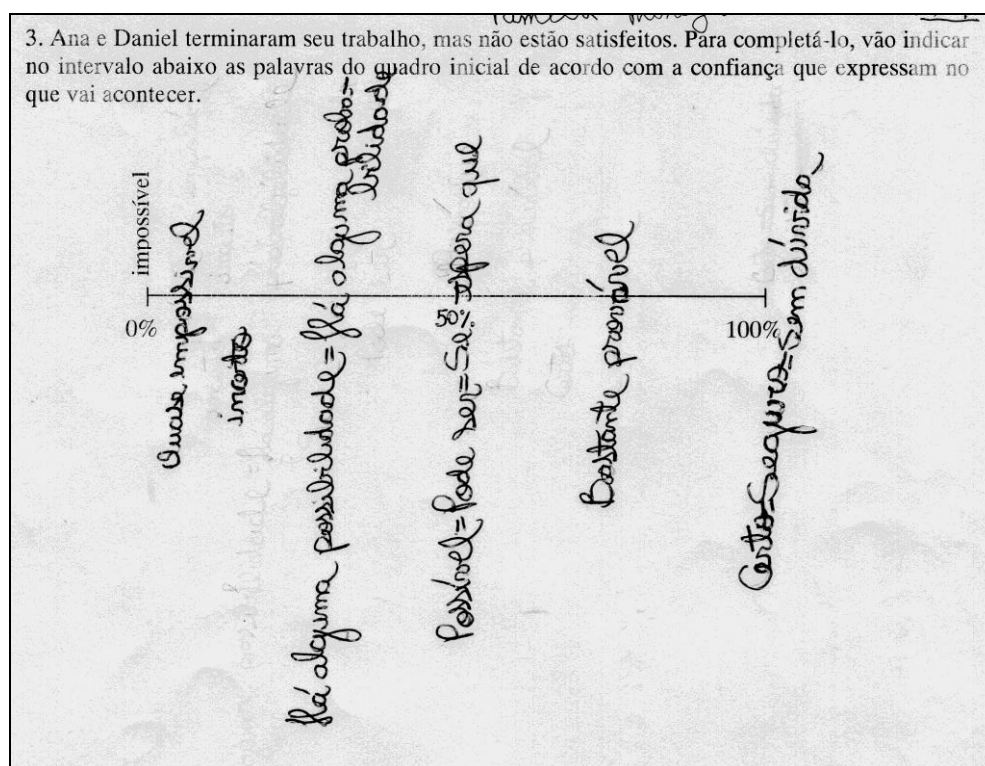 3. Ana e Daniel terminaram seu trabalho, mas não estão satisfeitos. Para completá-lo, vão indicar
no intervalo abaixo as palavras do quadro inicial de acordo com a confiança que expressam no
que vai acontecer.
impossível
Quase impossível
incerto
Há alguma possibilidade = Há alguma probabo=
bilidade
Possível = Pode ser = Se espera que
Bastante provável
Certo = Seguro = Sem dúvida
0%
50%
100%